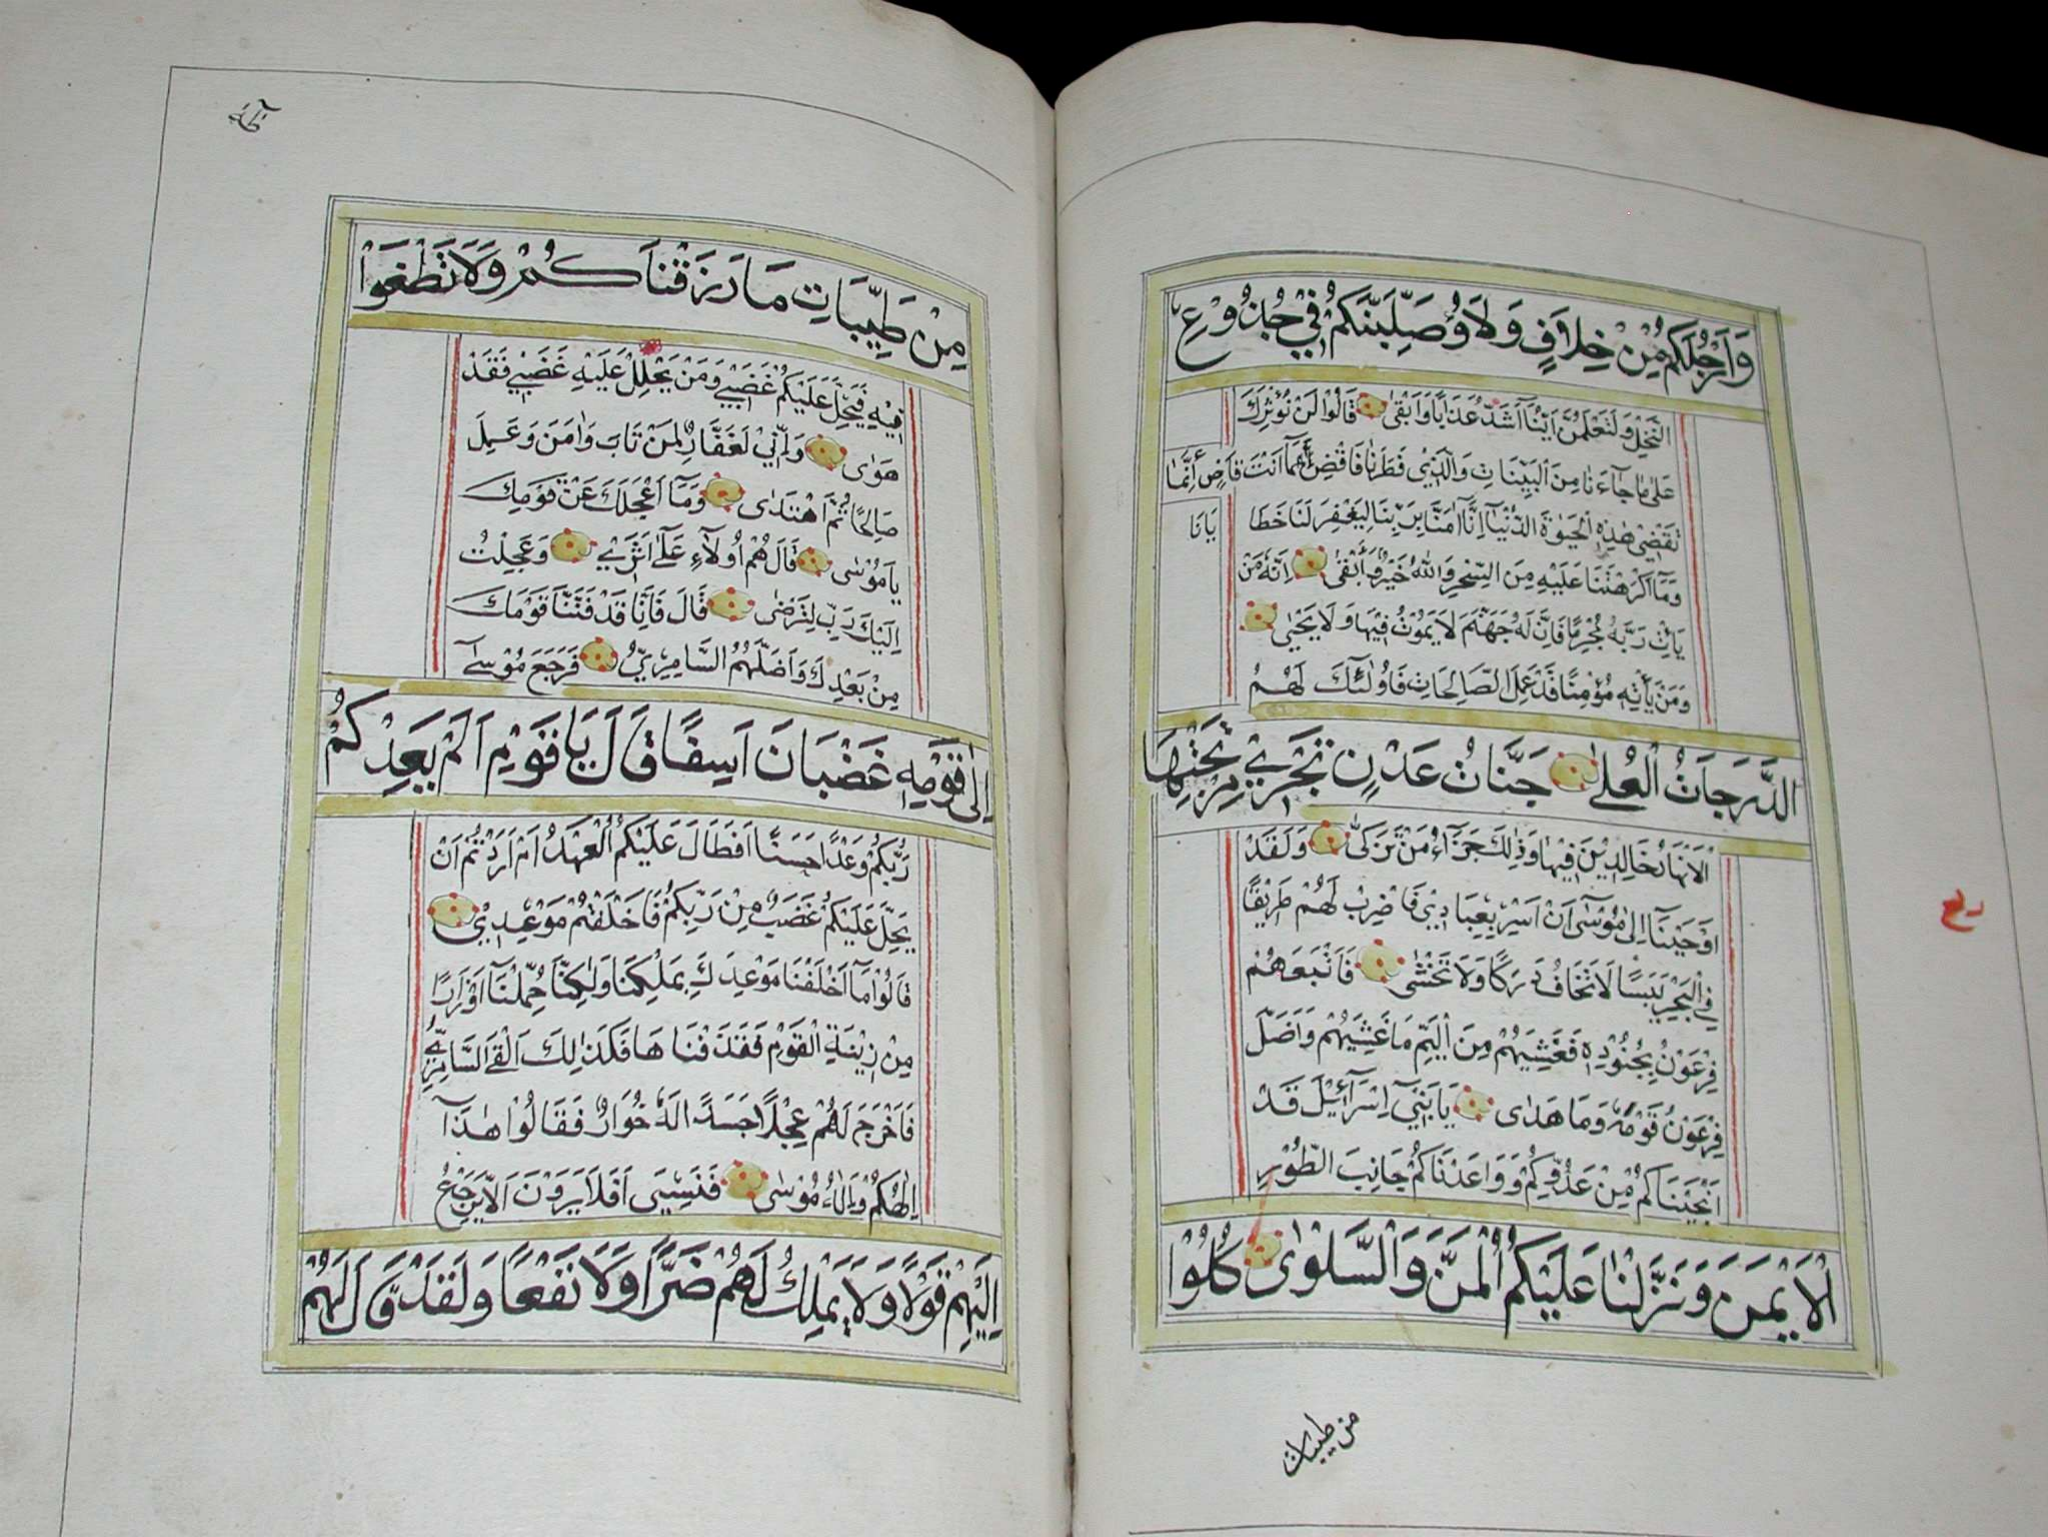 وَاَرْجُلَكُمْ مِنْ خِلَافٍ وَلَاُوصَلِّبَنَّكُمْ فِي جُذُوعِ
النَّخْلِ وَلَتَعْلَمُنَّ اَيُّنَا اَشَدُّ عَذَابًا وَاَبْقٰى قَالُوا لَنْ نُؤْثِرَكَ
عَلٰى مَا جَاءَنَا مِنَ الْبَيِّنَاتِ وَالَّذِي فَطَرَنَا فَاقْضِ مَا اَنْتَ قَاضٍ اِنَّمَا
تَقْضِي هٰذِهِ الْحَيٰوةَ الدُّنْيَا اِنَّا اٰمَنَّا بِرَبِّنَا لِيَغْفِرَ لَنَا خَطَا يَانَا
وَمَا اَكْرَهْتَنَا عَلَيْهِ مِنَ السِّحْرِ وَاللّٰهُ خَيْرٌ وَاَبْقٰى اِنَّهُ مَنْ
يَاْتِ رَبَّهُ مُجْرِمًا فَاِنَّ لَهُ جَهَنَّمَ لَا يَمُوتُ فِيهَا وَلَا يَحْيٰى
وَمَنْ يَاْتِهِ مُؤْمِنًا قَدْ عَمِلَ الصَّالِحَاتِ فَاُولٰئِكَ لَهُمُ
الدَّرَجَاتُ الْعُلٰى جَنَّاتُ عَدْنٍ تَجْرِي مِنْ تَحْتِهَا
الْاَنْهَارُ خَالِدِينَ فِيهَا وَذٰلِكَ جَزَاءُ مَنْ تَزَكّٰى وَلَقَدْ
اَوْحَيْنَا اِلٰى مُوسٰى اَنْ اَسْرِ بِعِبَادِي فَاضْرِبْ لَهُمْ طَرِيقًا
فِي الْبَحْرِ يَبَسًا لَا تَخَافُ دَرَكًا وَلَا تَخْشٰى فَاَتْبَعَهُمْ
فِرْعَوْنُ بِجُنُودِهِ فَغَشِيَهُمْ مِنَ الْيَمِّ مَا غَشِيَهُمْ وَاَضَلَّ
فِرْعَوْنُ قَوْمَهُ وَمَا هَدٰى يَا بَنِي اِسْرَائِيلَ قَدْ
اَنْجَيْنَاكُمْ مِنْ عَدُوِّكُمْ وَوَاعَدْنَاكُمْ جَانِبَ الطُّورِ
الْاَيْمَنَ وَنَزَّلْنَا عَلَيْكُمُ الْمَنَّ وَالسَّلْوٰى كُلُوا
من طيبات
مِنْ طَيِّبَاتِ مَا رَزَقْنَاكُمْ وَلَا تَطْغَوْا
فِيهِ فَيَحِلَّ عَلَيْكُمْ غَضَبِي وَمَنْ يَحْلِلْ عَلَيْهِ غَضَبِي فَقَدْ
هَوٰى وَاِنِّي لَغَفَّارٌ لِمَنْ تَابَ وَاٰمَنَ وَعَمِلَ
صَالِحًا ثُمَّ اهْتَدٰى وَمَا اَعْجَلَكَ عَنْ قَوْمِكَ
يَا مُوسٰى قَالَ هُمْ اُولَاءِ عَلٰى اَثَرِي وَعَجِلْتُ
اِلَيْكَ رَبِّ لِتَرْضٰى قَالَ فَاِنَّا قَدْ فَتَنَّا قَوْمَكَ
مِنْ بَعْدِكَ وَاَضَلَّهُمُ السَّامِرِيُّ فَرَجَعَ مُوسٰى
اِلٰى قَوْمِهِ غَضْبَانَ اَسِفًا قَالَ يَا قَوْمِ اَلَمْ يَعِدْكُمْ
رَبُّكُمْ وَعْدًا حَسَنًا اَفَطَالَ عَلَيْكُمُ الْعَهْدُ اَمْ اَرَدْتُمْ اَنْ
يَحِلَّ عَلَيْكُمْ غَضَبٌ مِنْ رَبِّكُمْ فَاَخْلَفْتُمْ مَوْعِدِي
قَالُوا مَا اَخْلَفْنَا مَوْعِدَكَ بِمَلْكِنَا وَلٰكِنَّا حُمِّلْنَا اَوْزَارًا
مِنْ زِينَةِ الْقَوْمِ فَقَذَفْنَاهَا فَكَذٰلِكَ اَلْقَى السَّامِرِيُّ
فَاَخْرَجَ لَهُمْ عِجْلًا جَسَدًا لَهُ خُوَارٌ فَقَالُوا هٰذَا
اِلٰهُكُمْ وَاِلٰهُ مُوسٰى فَنَسِيَ اَفَلَا يَرَوْنَ اَلَّا يَرْجِعُ
اِلَيْهِمْ قَوْلًا وَلَا يَمْلِكُ لَهُمْ ضَرًّا وَلَا نَفْعًا وَلَقَدْ قَالَ لَهُمْ